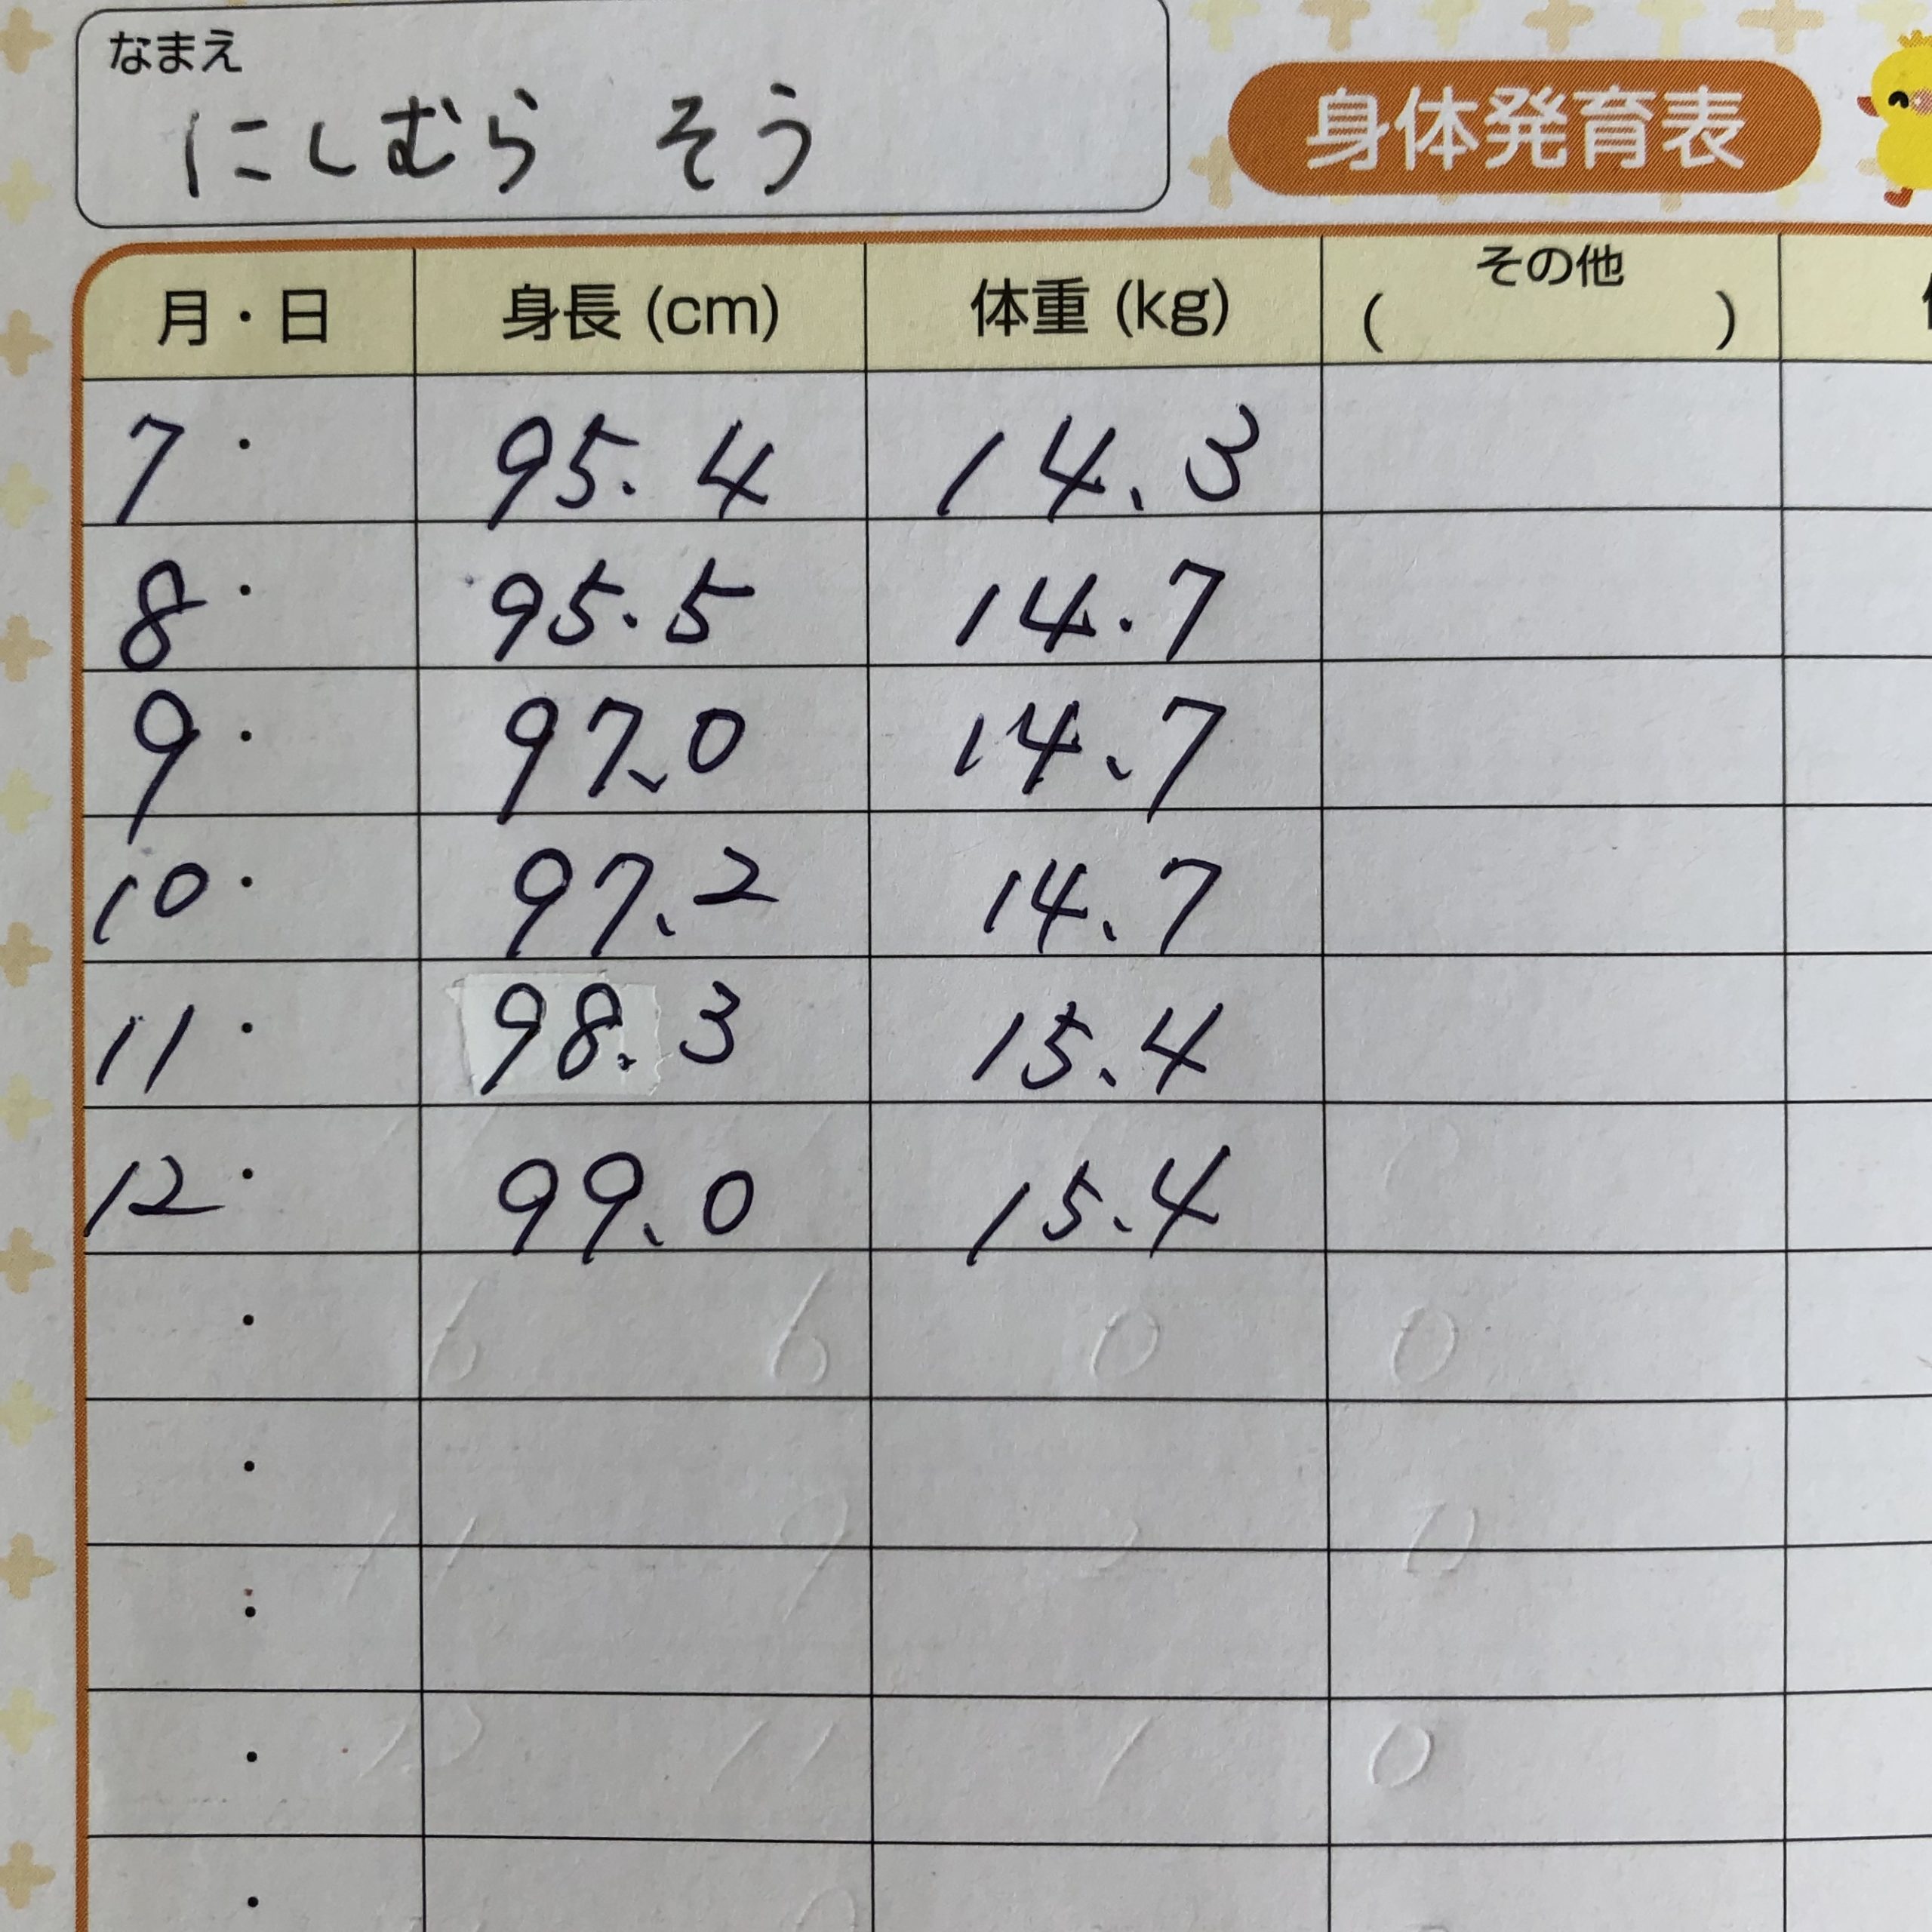 なまえ
にしむら そう
身体発育表
月・日 身長(cm) 体重(kg) その他( )
7・ 95.4 14.3
8・ 95.5 14.7
9・ 97.0 14.7
10・ 97.2 14.7
11・ 98.3 15.4
12・ 99.0 15.4